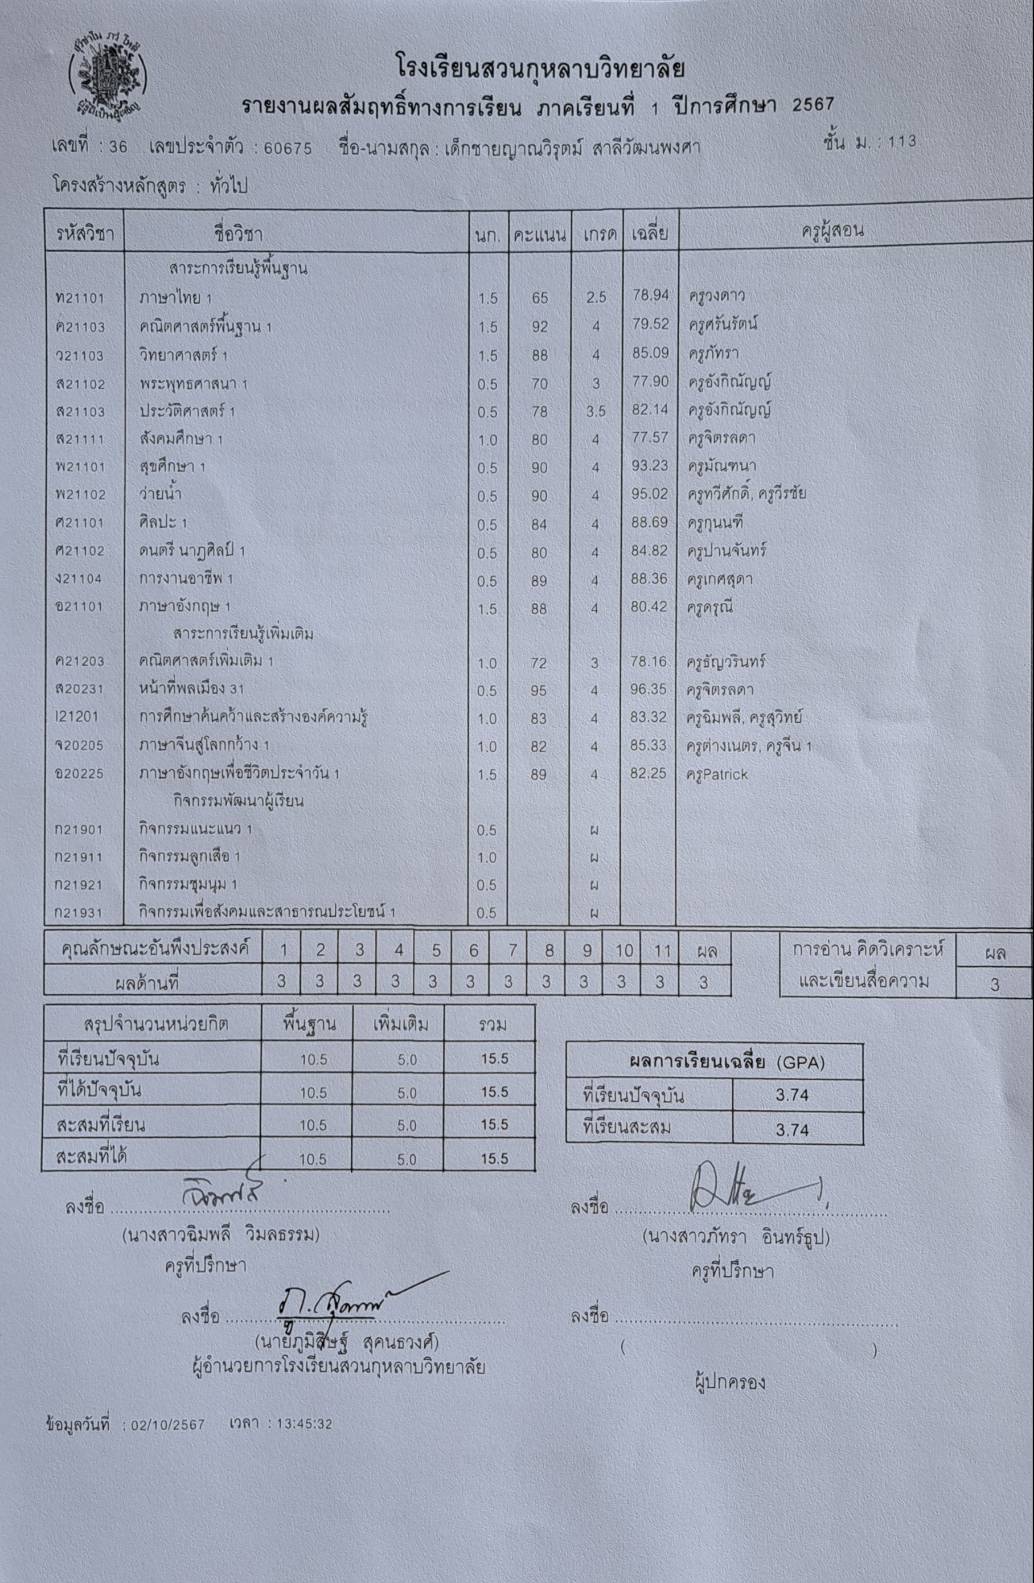 สุวิชาโน ภวํ โหติ
ผู้รู้ดีเป็นผู้เจริญ
โรงเรียนสวนกุหลาบวิทยาลัย
รายงานผลสัมฤทธิ์ทางการเรียน ภาคเรียนที่ 1 ปีการศึกษา 2567
เลขที่ : 36 เลขประจำตัว : 60675 ชื่อ-นามสกุล : เด็กชายญาณวิรุตม์ สาลีวัฒนพงศา ชั้น ม. : 113
โครงสร้างหลักสูตร : ทั่วไป
รหัสวิชา ชื่อวิชา นก. คะแนน เกรด เฉลี่ย ครูผู้สอน
สาระการเรียนรู้พื้นฐาน
ท21101 ภาษาไทย 1 1.5 65 2.5 78.94 ครูวงดาว
ค21103 คณิตศาสตร์พื้นฐาน 1 1.5 92 4 79.52 ครูศรันรัตน์
ว21103 วิทยาศาสตร์ 1 1.5 88 4 85.09 ครูภัทรา
ส21102 พระพุทธศาสนา 1 0.5 70 3 77.90 ครูอังกิณัญญ์
ส21103 ประวัติศาสตร์ 1 0.5 78 3.5 82.14 ครูอังกิณัญญ์
ส21111 สังคมศึกษา 1 1.0 80 4 77.57 ครูจิตรลดา
พ21101 สุขศึกษา 1 0.5 90 4 93.23 ครูมัณฑนา
พ21102 ว่ายน้ำ 0.5 90 4 95.02 ครูทวีศักดิ์, ครูวีรชัย
ศ21101 ศิลปะ 1 0.5 84 4 88.69 ครูกุนนที
ศ21102 ดนตรี นาฏศิลป์ 1 0.5 80 4 84.82 ครูปานจันทร์
ง21104 การงานอาชีพ 1 0.5 89 4 88.36 ครูเกศสุดา
อ21101 ภาษาอังกฤษ 1 1.5 88 4 80.42 ครูดรุณี
สาระการเรียนรู้เพิ่มเติม
ค21203 คณิตศาสตร์เพิ่มเติม 1 1.0 72 3 78.16 ครูธัญวรินทร์
ส20231 หน้าที่พลเมือง 31 0.5 95 4 96.35 ครูจิตรลดา
I21201 การศึกษาค้นคว้าและสร้างองค์ความรู้ 1.0 83 4 83.32 ครูฉิมพลี, ครูสุวิทย์
จ20205 ภาษาจีนสู่โลกกว้าง 1 1.0 82 4 85.33 ครูต่างเนตร, ครูจีน 1
อ20225 ภาษาอังกฤษเพื่อชีวิตประจำวัน 1 1.5 89 4 82.25 ครูPatrick
กิจกรรมพัฒนาผู้เรียน
ก21901 กิจกรรมแนะแนว 1 0.5 ผ
ก21911 กิจกรรมลูกเสือ 1 1.0 ผ
ก21921 กิจกรรมชุมนุม 1 0.5 ผ
ก21931 กิจกรรมเพื่อสังคมและสาธารณประโยชน์ 1 0.5 ผ
คุณลักษณะอันพึงประสงค์ 1 2 3 4 5 6 7 8 9 10 11 ผล
ผลด้านที่ 3 3 3 3 3 3 3 3 3 3 3 3
การอ่าน คิดวิเคราะห์ ผล
และเขียนสื่อความ 3
สรุปจำนวนหน่วยกิต พื้นฐาน เพิ่มเติม รวม
ที่เรียนปัจจุบัน 10.5 5.0 15.5
ที่ได้ปัจจุบัน 10.5 5.0 15.5
สะสมที่เรียน 10.5 5.0 15.5
สะสมที่ได้ 10.5 5.0 15.5
ผลการเรียนเฉลี่ย (GPA)
ที่เรียนปัจจุบัน 3.74
ที่เรียนสะสม 3.74
ลงชื่อ ฉิมพลี
(นางสาวฉิมพลี วิมลธรรม)
ครูที่ปรึกษา
ลงชื่อ
(นางสาวภัทรา อินทร์ธูป)
ครูที่ปรึกษา
ลงชื่อ
(นายภูมิสิษฐ์ สุคนธวงศ์)
ผู้อำนวยการโรงเรียนสวนกุหลาบวิทยาลัย
ลงชื่อ
( )
ผู้ปกครอง
ข้อมูลวันที่ : 02/10/2567 เวลา : 13:45:32